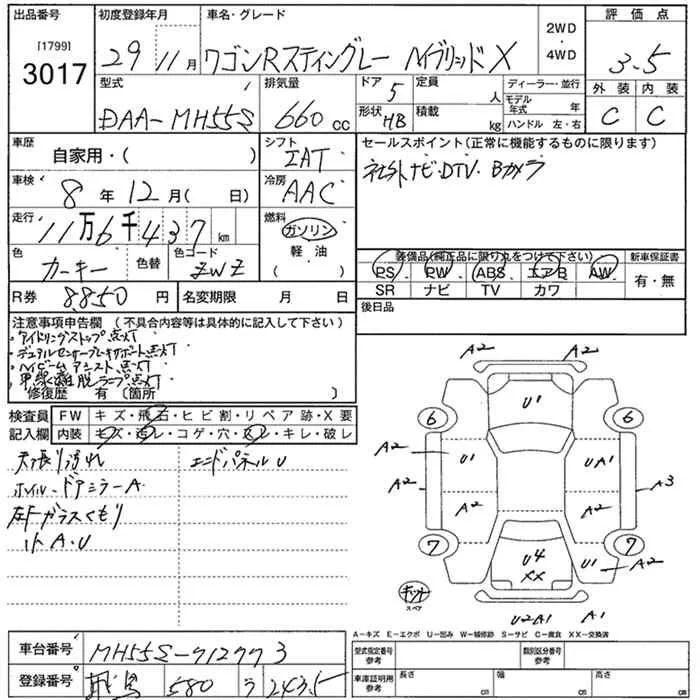 出品番号 初度登録年月 車名・グレード 2WD・4WD 評価点
[1799]
3017 29年11月 ワゴンRスティングレー ハイブリッドX 3.5
型式 排気量 ドア 5 定員 人 ディーラー・並行 外装 内装
DAA-MH55S 660cc 形状 HB 積載 kg モデル年式 年 C C
ハンドル 左・右
車歴 シフト セールスポイント(正常に機能するものに限ります)
自家用・( ) IAT 社外ナビ・DTV・Bカメラ
車検 冷房
8年12月( 日) AAC
走行 燃料
11万6千437km ガソリン
色 色替 色コード 軽油
カーキー ZWZ ( )
装備品(純正品に限り丸をつけて下さい) 新車保証書
PS PW ABS エアB AW 有・無
SR ナビ TV カワ
R券 8850円 名変期限 月 日 後日品
注意事項申告欄 (不具合内容等は具体的に記入して下さい)
・アイドリングストップ点灯
・デュアルセンサーブレーキサポート点灯
・ハイビームアシスト点灯
・車線離脱ランプ点灯
修復歴 有 〔箇所 〕
検査員記入欄 FW キズ・飛石・ヒビ割・リペア跡・X要
内装 キズ・汚レ・コゲ・穴・スレ・キレ・破レ
天張り汚れ エンドパネルU
ホイル・ドアミラーA
左Fガラスくもり
小A・U
A2
U1
6 6
A2 U1 UA1 A2
A2 A2 A2 A3
7 7
U4 XX U1 A2
キット
スペア
U2A1 A1
A-キズ E-エクボ U-凹み W-補修跡 S-サビ C-腐食 XX-交換済
車台番号 MH55S-712773
型式指定番号 参考 類別区分番号 参考
登録番号 群馬 580 う 243.5
車庫証明用 参考 長さ cm 幅 cm 高さ cm